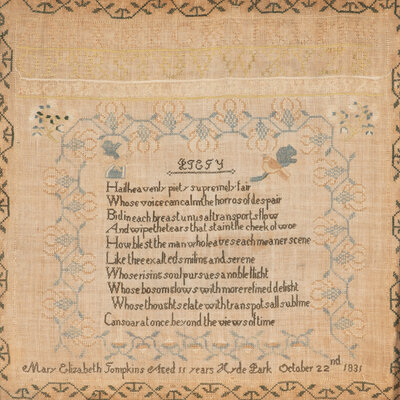 PIETY
Hail heavenly piety supremely fair
Whose voice can calm the horros of despair
Bid in each breast unusal transports flow
And wipe the tears that stain the cheek of woe
How blest the man who leaves each meaner scene
Like thee exalted smilns and serene
Whose rising soul pursues a noble flight
Whose bosom glows with more refined delight
Whose thoughts elate with transpots all sublme
Can soar at once beyond the views of time
Mary Elizabeth Tompkins Aged 11 years Hyde Park October 22nd 1831